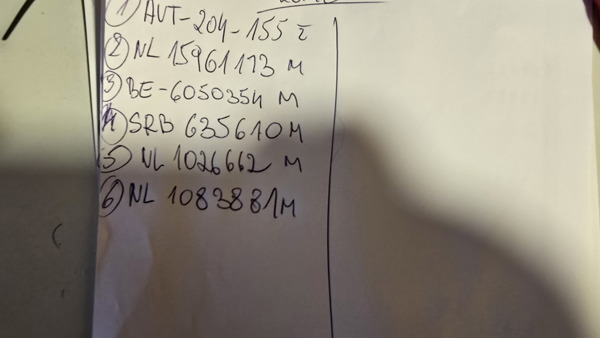 1 AUT-204-155 Ž
2 NL 15961173 M
3 BE-6050354 M
4 SRB 635610 M
5 NL 1026662 M
6 NL 1083881 M